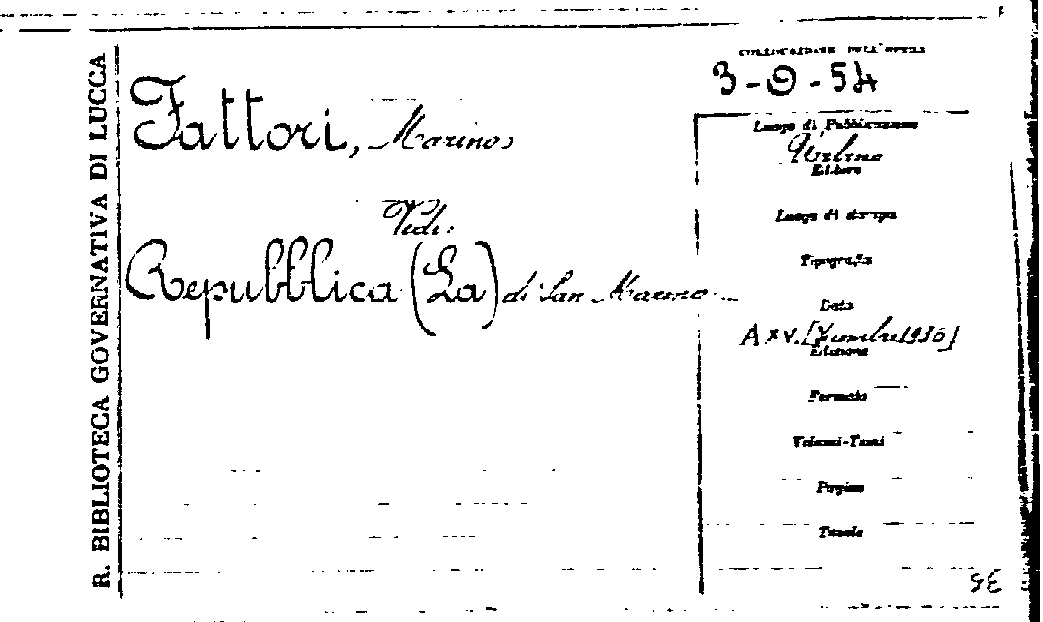 R. BIBLIOTECA GOVERNATIVA DI LUCCA
Fattori, Marino
Vedi:
Repubblica (La) di San Marino
COLLOCAZIONE DELL'OPERA
3-O-54
Luogo di Pubblicazione
Urbino
Editore
Luogo di stampa
Tipografia
Data
A XV. [ 1936]
Edizione
Formato
Volumi-Tomi
Pagine
Tavole